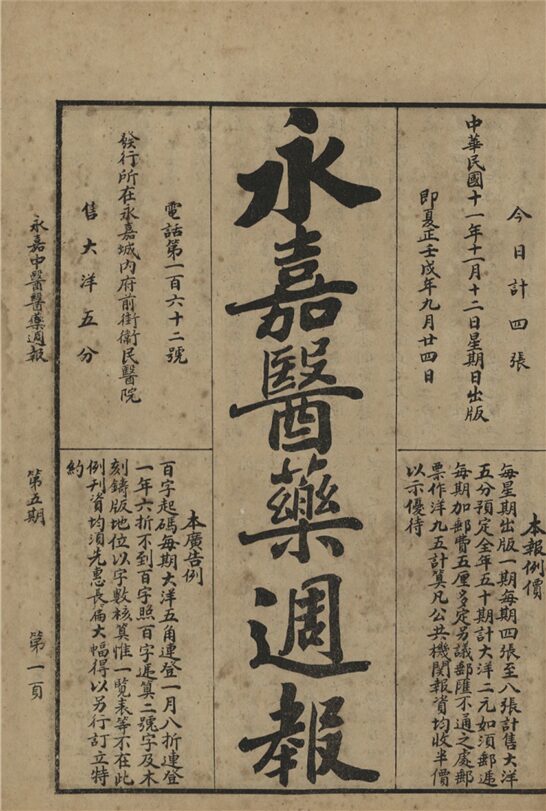 今日計四張
中華民國十一年十一月十二日星期日出版
即夏正壬戌年九月廿四日
本報例價
每星期出版一期每期四張至八張計售大洋
五分預定全年五十期計大洋二元如須郵遞
每期加郵費五厘多定另議郵匯不通之處郵
票作洋九五計算凡公共機關報資均收半價
以示優待
永嘉醫藥週報
電話第一百六十二號
發行所在永嘉城內府前街衛民醫院
售大洋五分
本廣告例
百字起碼每期大洋五角連登一月八折連登
一年六折不到百字照百字遞算二號字及木
刻鑄版地位以字數核算惟一覽表等不在此
例刊資均須先惠長扁大幅得以另行訂立特
約
永嘉中醫醫藥週報
第五期
第一頁